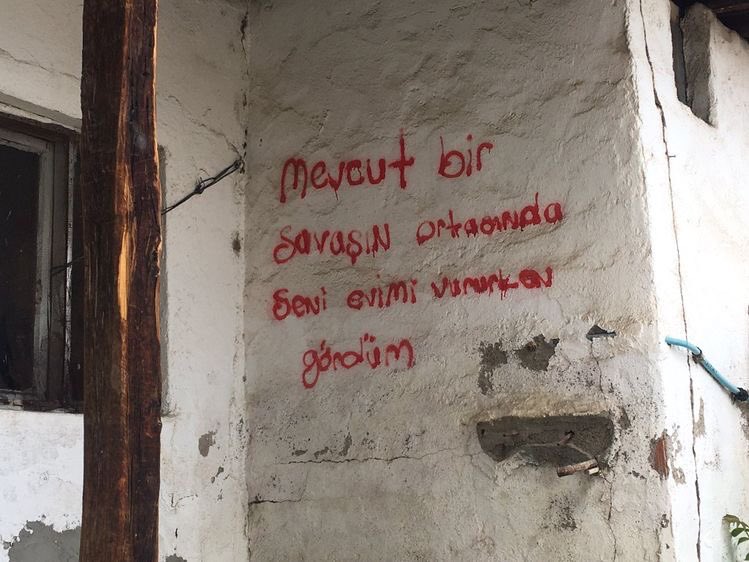 mevcut bir
savaşın ortasında
seni evimi vururken
gördüm